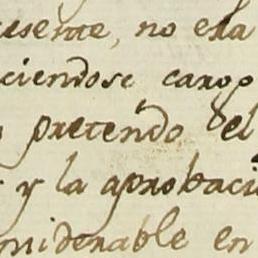 resente, no era
ciendose carg
pretendo el
y la aprobaci
nsiderable en